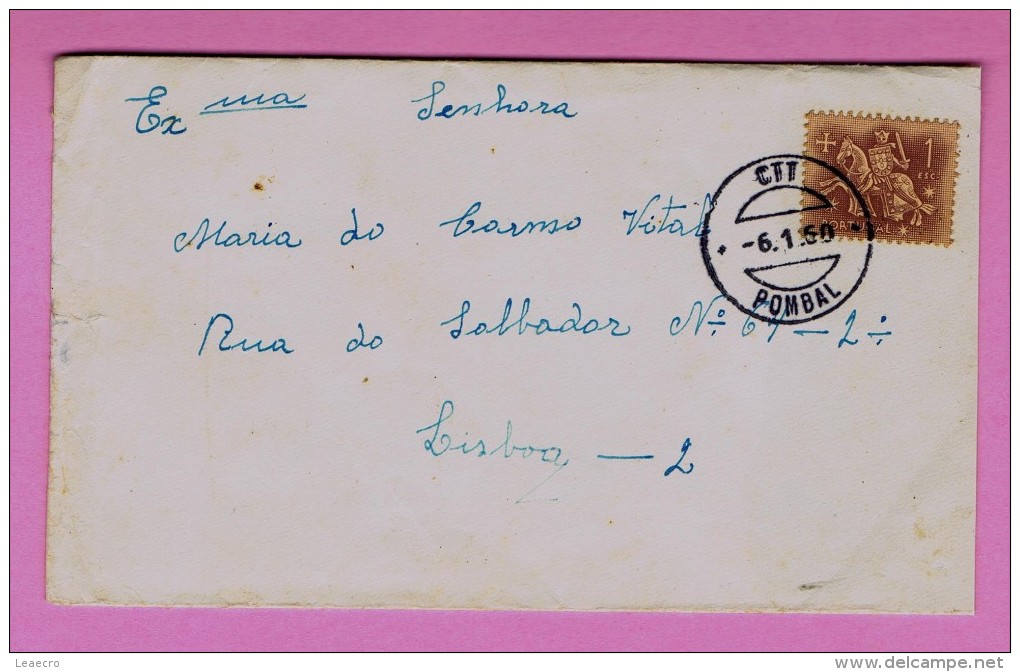 Ex ma Senhora
1
ESC.
CTT
Maria do Carmo Vital
-6.1.60
PORTUGAL
POMBAL
Rua do Salbador Nº 67 - 2º
Lisboa - 2
Leaecro
www.delcampe.net